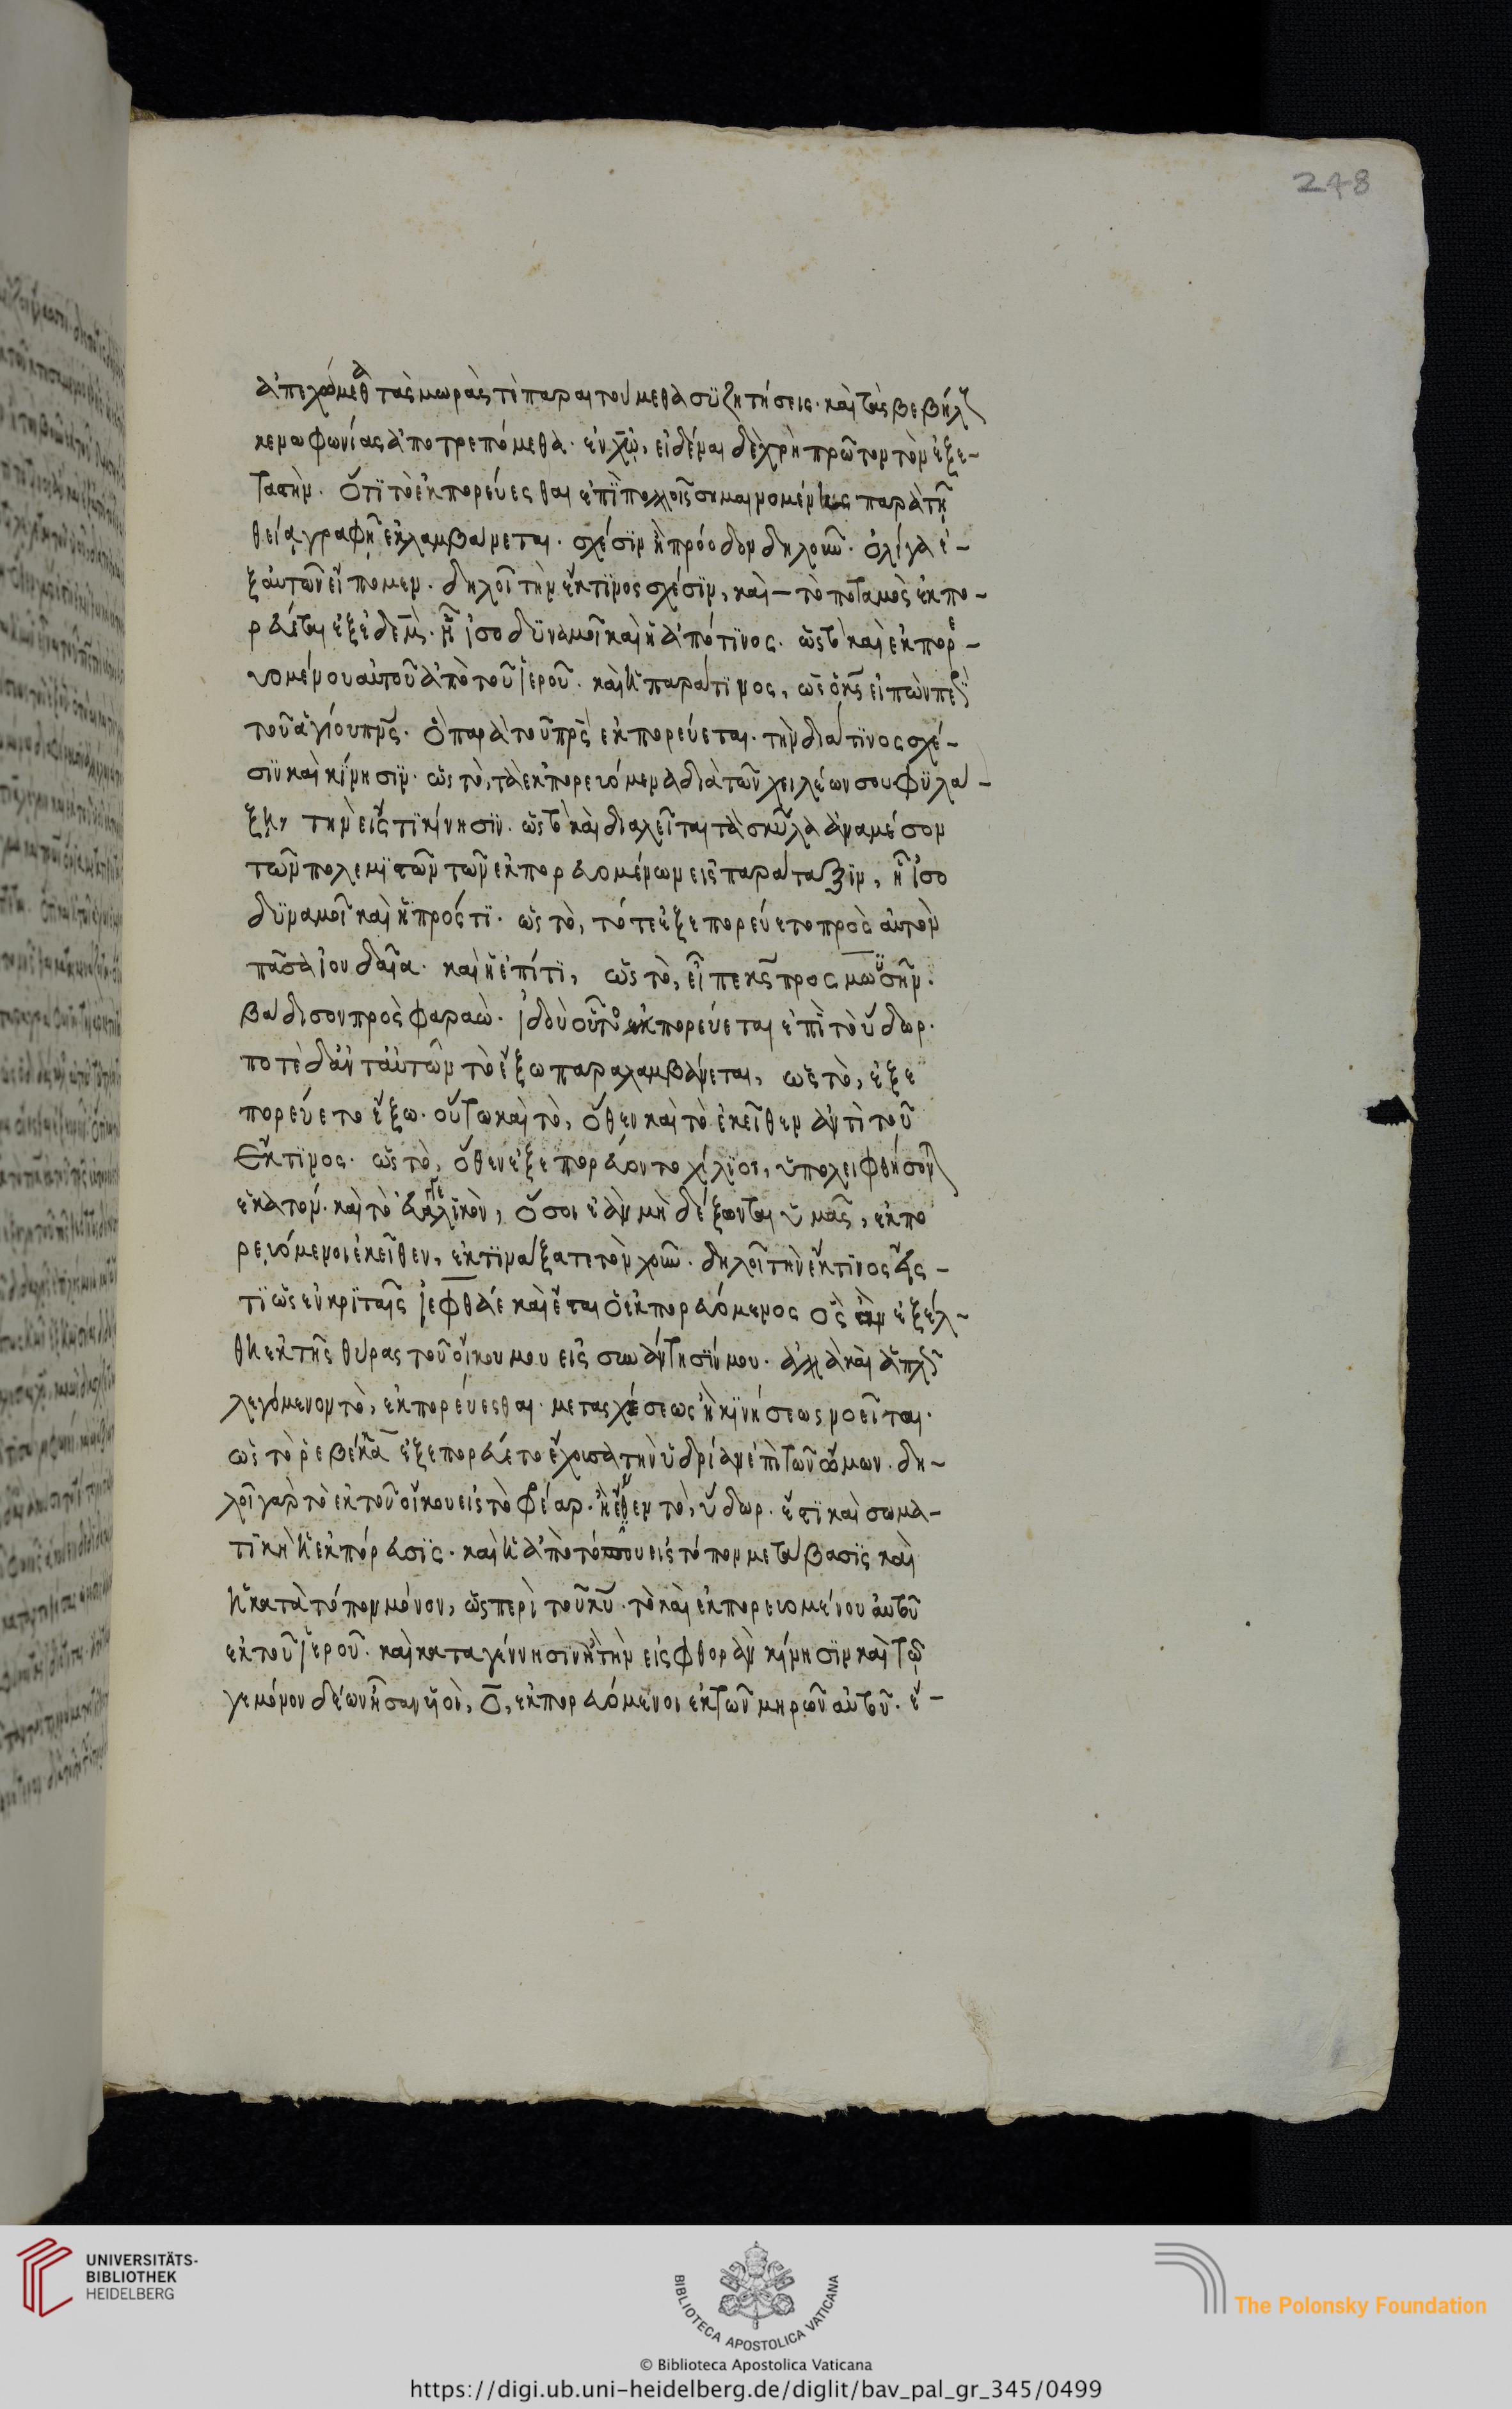 248
ἀπεχώμεθα τὰς μωρὰς τὲ παραιτούμεθα συζητήσεις. καὶ τὰς βεβήλους
κενωφωνίας ἀποτρεπόμεθα. ἐν χῶ, εἰδέναι δὲ χρὴ πρῶτον τὸν ἐξε-
ταστὴν. ὅτι τὸ ἐκπορεύεσθαι ἐπὶ πολλοῖς σημαινομένοις παρὰ τῇ
θείᾳ γραφῇ ἐκλαμβάνεται. σχέσιν ἢ πρόοδον δηλοῦν. ὀλίγα ἐ-
ξ αὐτῶν εἴπομεν. δηλοῖ τὴν ἔκτινος σχέσιν, καὶ - τὸ ποταμὸς ἐκπο-
ρεύεται ἐξ ἐδεμ. ἧ ἰσοδυναμοῖ καὶ ἡ ἀπότινος. ὥς τὸ καὶ ἐκπορε-
υομένου αὐτοῦ ἀπὸ τοῦ ἱεροῦ. καὶ ἡ παράτινος, ὡς ὁ κς εἰπὼν περὶ
τοῦ ἁγίου πνς. ὃ παρὰ τοῦ πρς ἐκπορεύεται. τὴν διάτινος σχέ-
σιν καὶ κίνησιν. ὥς τὸ, τὰ ἐκπορευόμενα διὰ τῶν χειλέων σου φύλα-
ξῃ, τὴν εἴς τι κίνησιν. ὥς τὸ καὶ διαλεῖται τὰ σκῦλα ἀναμέσον
τῶν πολεμιστῶν τῶν ἐκπορευομένων εἰς παράταξιν, ἧ ἰσο
δυναμοῖ καὶ ἡ πρός τι. ὥς τὸ, τότε ἐξεπορεύετο πρὸς αὐτὸν
πᾶσα ἰουδαῖα. καὶ ἡ ἐπίτι, ὥς τὸ, εἶπε κς προς μωϋσῆν.
βάδισον πρὸς φαραὼ. ἰδοὺ οὗτος ἐκπορεύεται ἐπὶ τὸ ὕδωρ.
ποτὲ δ' ἀντ' αὐτῶν τὸ ἔξω παραλαμβάνεται, ὥς τὸ, ἐξε
πορεύετο ἔξω. οὕτω καὶ τὸ, ὅθεν καὶ τὸ ἐκεῖθεν ἀντὶ τοῦ
ἔκτινος. ὥς τὸ, ὅθεν ἐξεπορεύοντο χίλιοι, ὑπολειφθήσονται
ἑκατόν. καὶ τὸ εὐαγγελικὸν, ὅσοι ἐὰν μὴ δέξωνται ὑμᾶς, ἐκπο
ρευόμενοι ἐκεῖθεν, ἐκτινάξατε τὸν χοῦν. δηλοῖ τὴν ἔκτινος εἴς -
τι ὥς ἐν κριταῖς ἰεφθάε καὶ ἔσται ὁ ἐκπορευόμενος ὃς ἂν ἐξέλ-
θῃ ἐκ τῆς θύρας τοῦ οἴκου μου εἰς συνάντησίν μου. ἀλλὰ καὶ ἁπλῶς
λεγόμενον τὸ, ἐκπορεύεσθαι. μετασχέσεως ἢ κινήσεως νοεῖται.
ὡς τὸ ῥεβέκκα ἐξεπορεύετο ἔχουσα τὴν ὑδρίαν ἐπὶ τῶν ὤμων. δη-
λοῖ γαρ τὸ ἐκ τοῦ οἴκου εἰς τὸ φρέαρ. ἢ ὅθεν τὸ, ὕδωρ. ἔτι καὶ σωμα-
τικὴ ἡ ἐκπόρευσις. καὶ ἡ ἀπὸ τόπου εἰς τόπον μετάβασις καὶ
ἡ κατὰ τόπον μόνον, ὥς περὶ τοῦ κυ. τὸ καὶ ἐκπορευομένου αὐτοῦ
ἐκ τοῦ ἱεροῦ. καὶ κατα γέννησιν ἢ τὴν εἰς φθορὰν κίνησιν καὶ τῶ
γεμόνον δέων ἦσαν υἱοὶ, ο, ἐκπορευόμενοι ἐκ τῶν μηρῶν αὐτοῦ. ἔ-
UNIVERSITÄTS-
BIBLIOTHEK
HEIDELBERG
BIBLIOTECA APOSTOLICA VATICANA
The Polonsky Foundation
© Biblioteca Apostolica Vaticana
https://digi.ub.uni-heidelberg.de/diglit/bav_pal_gr_345/0499